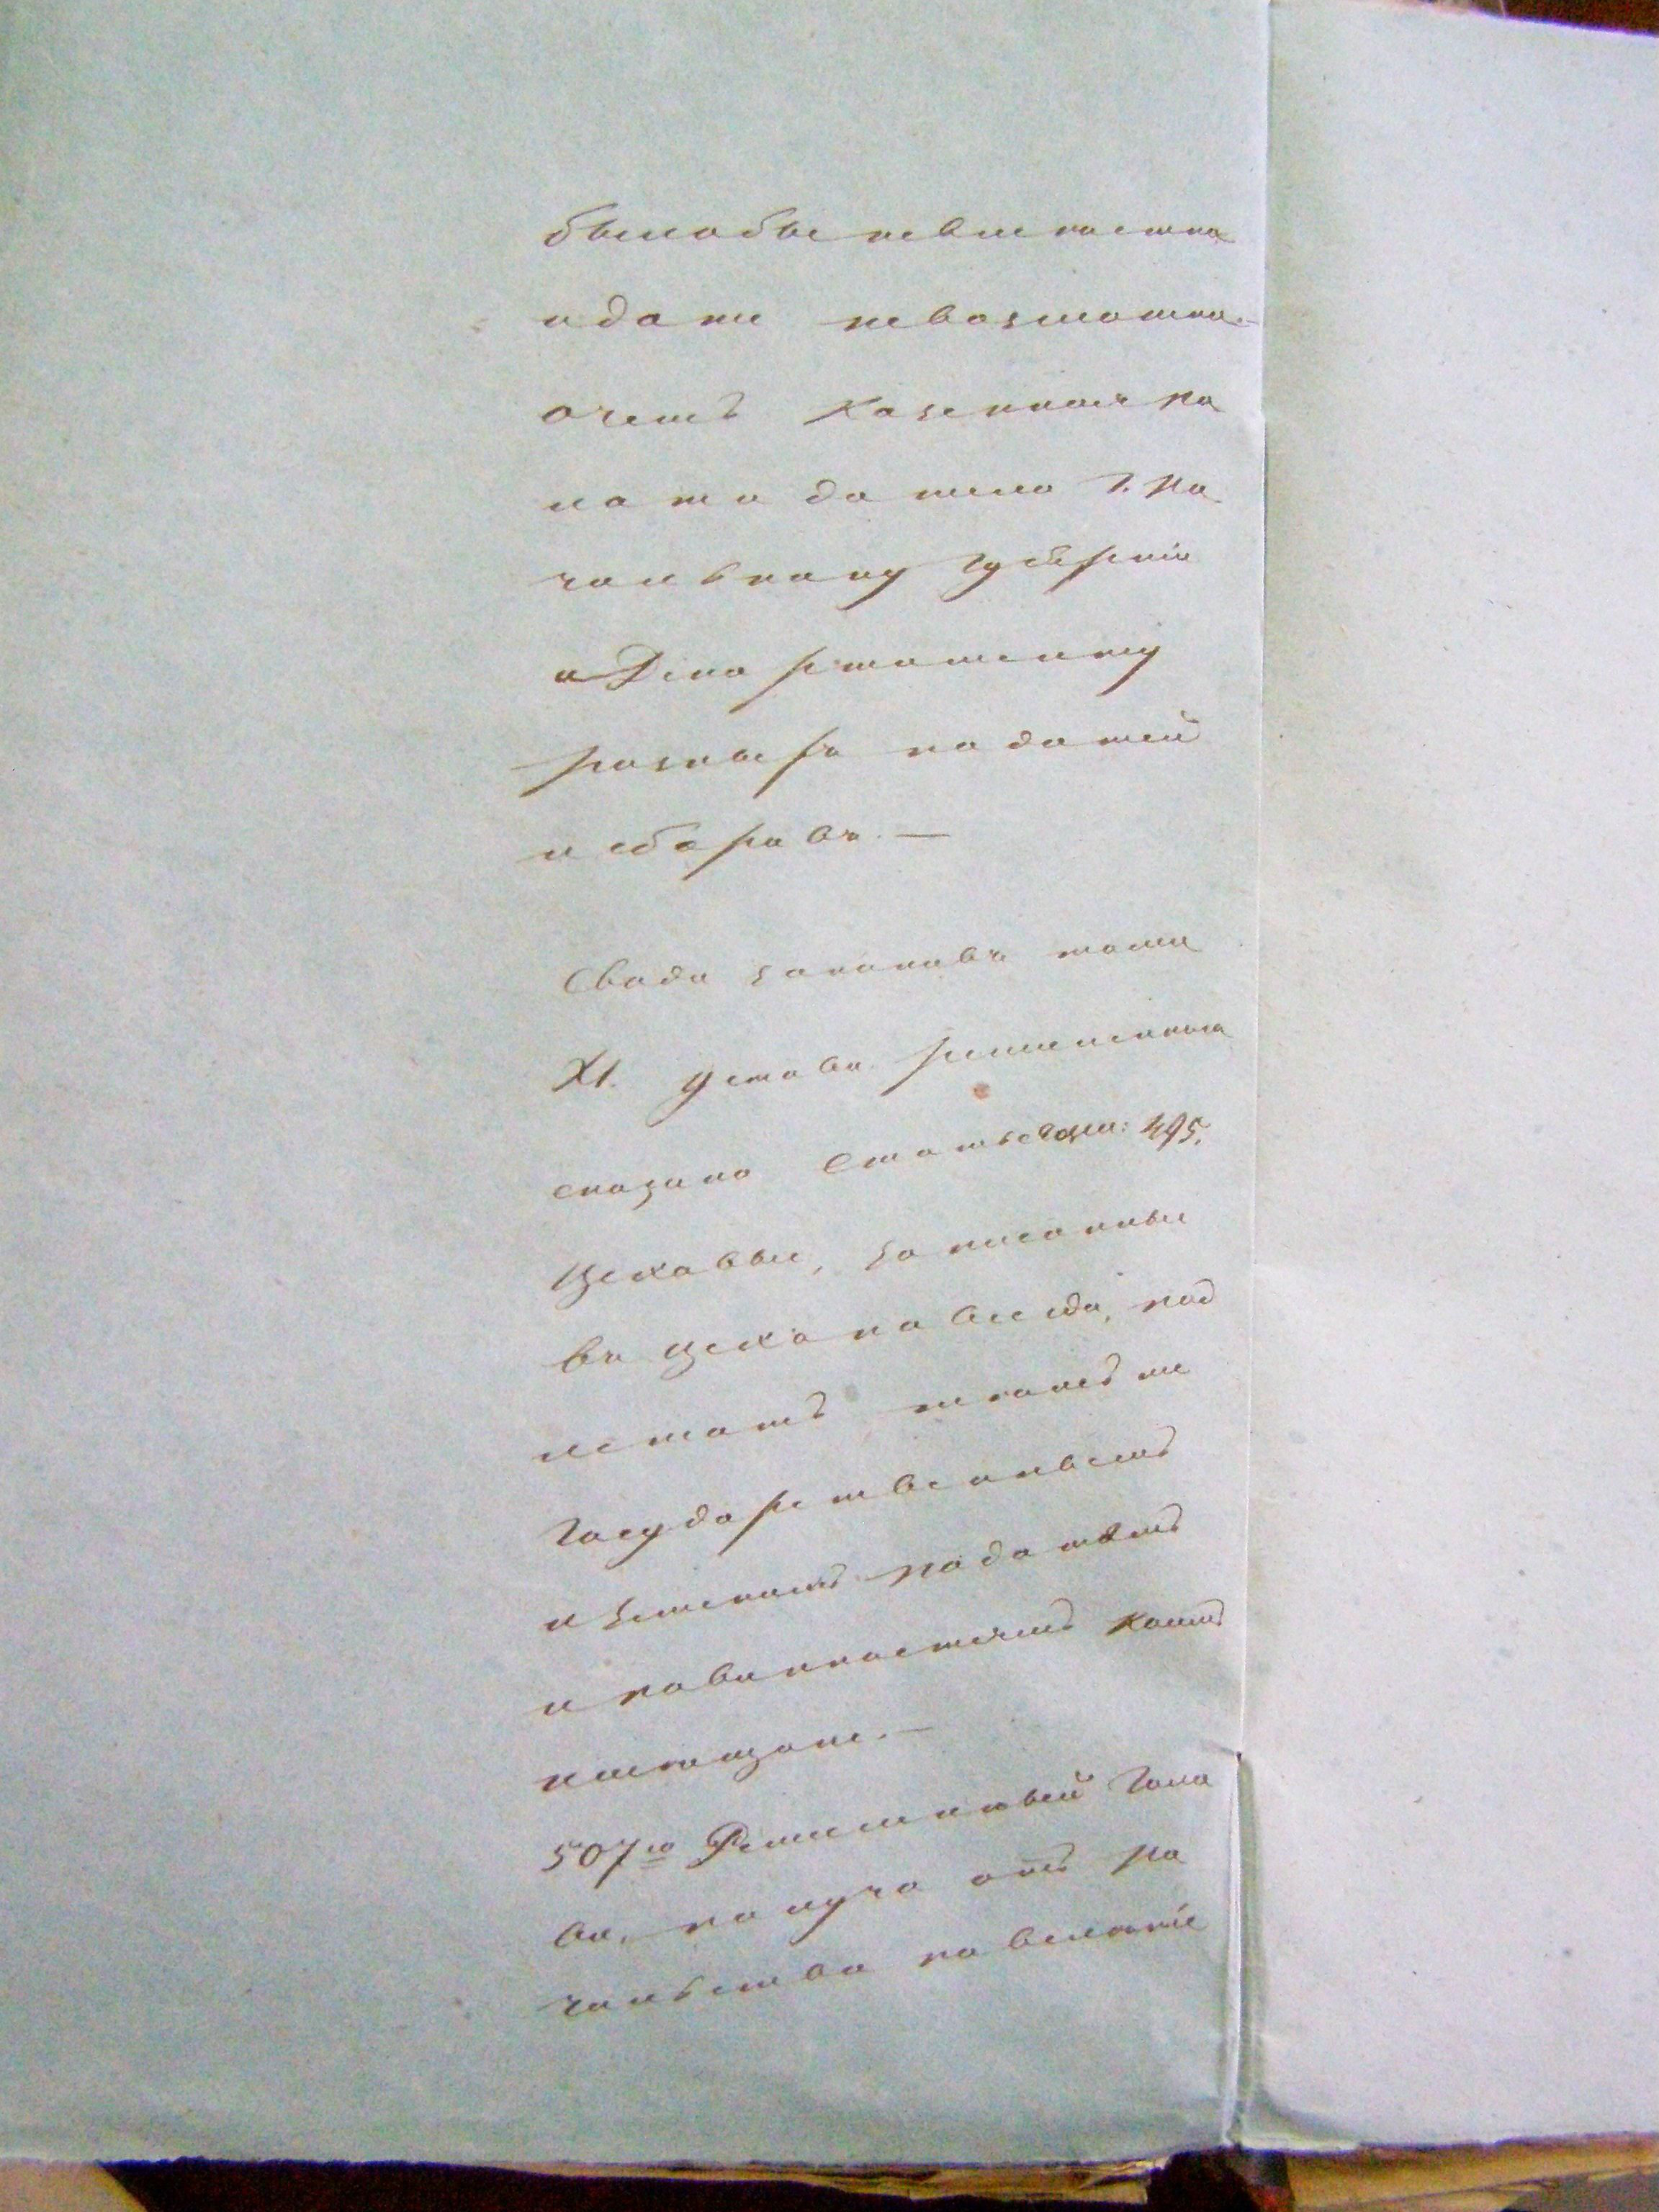 было бы невместно
и даже невозможно.—
о чемъ Казенная па
лата донесла Г. На
чальнику губерніи
и Департаменту
разныхъ податей
и сборовъ.—
Свода законовъ тома
XI. устава ремесленна
сказано Статьею: 495.
Цеховые, записанные
въ цехъ на всегда, под
лежатъ тѣмъ же
Государственнымъ
и Земскимъ податямъ
и повинностямъ какимъ
и мещане.—
507ю Ремесленный Голо
ва, получа отъ на
чальства повеленіе